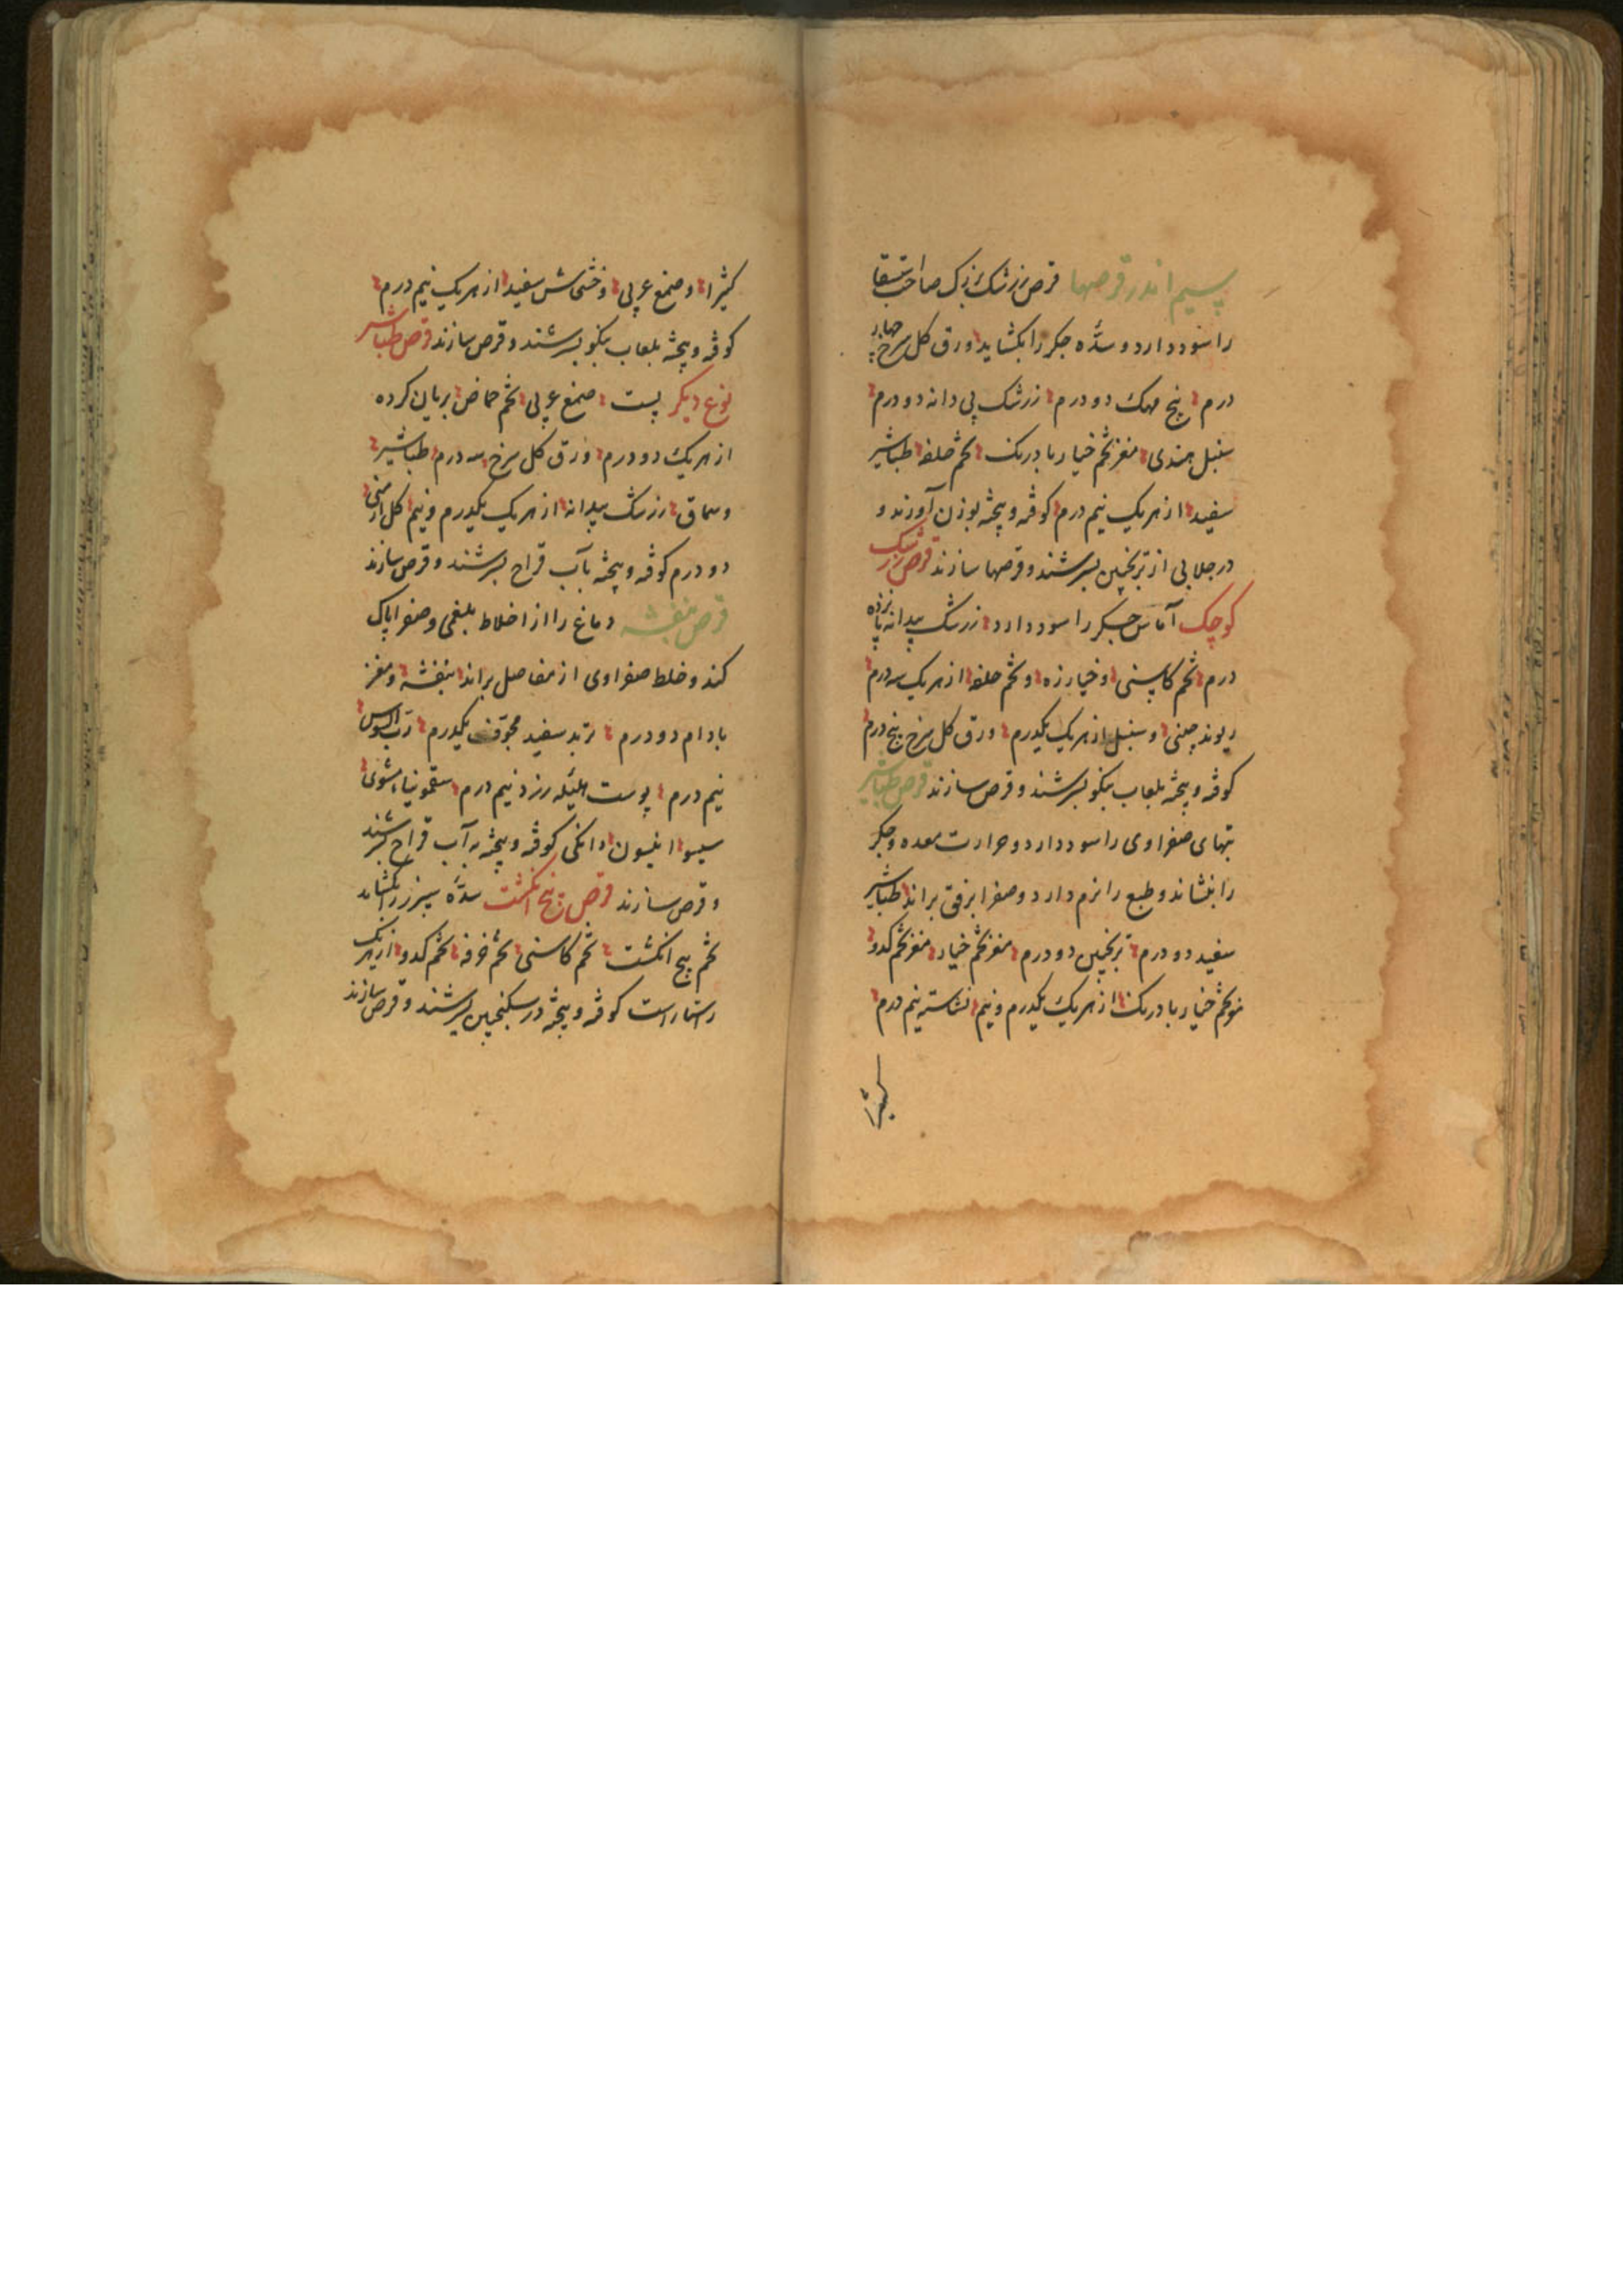 سیم اندر قرصها قرص زرشک بزرک صاحب استسقا
را سود دارد و سدّه جکر را بکشاید ورق کل سرخ چهار
درم بیخ مهک دو درم زرشک بی دانه دو درم
سنبل هندی مغز تخم خیار بادرنک تخم حلفه طباشیر
سفید از هر یک نیم درم کوفته و پیخته بوزن آورند و
در جلابی از ترنجبین بسرشند و قرصها سازند قرص زرشک
کوچک آماس جکر را سود دارد زرشک بیدانه پانزده
درم تخم کاسنی و خیارزه و تخم حلفه از هر یک سه درم
ریوند چینی و سنبل از هر یک یکدرم ورق کل سرخ پنج درم
کوفته و پیخته بلعاب بنکو بسرشند و قرص سازند قرص طباشیر
تبهای صفراوی را سود دارد و حرارت معده و جکر
را بنشاند و طبع را نرم دارد و صفرا برفق براند طباشیر
سفید دو درم ترنجبین دو درم مغز تخم خیار مغز تخم کدو
مغز تخم خیار بادرنک از هر یک یکدرم و نیم نشاسته نیم درم
کثیرا
کثیرا و صمغ عربی و خشخاش سفید از هر یک نیم درم
کوفته و پیخته بلعاب بنکو بسرشند و قرص سازند قرص طباشیر
نوع دیکر پست صمغ عربی تخم حماض بریان کرده
از هر یک دو درم ورق کل سرخ سه درم طباشیر
و سماق زرشک بیدانه از هر یک یکدرم و نیم کل ارمنی
دو درم کوفته و پیخته بآب قراح بسرشند و قرص سازند
قرص بنفشه دماغ را از اخلاط بلغمی و صفرا پاک
کند و خلط صفراوی از مفاصل براند بنفشه و مغز
بادام دو درم تربد سفید مجوّف یکدرم ربّ السوس
نیم درم پوست هلیله زرد نیم درم سقمونیا مشوی
انیسون دانکی کوفته و پیخته به آب قراح بسرشند
و قرص سازند قرص پنج انکشت سدّه سپرز را بکشاید
تخم پنج انکشت تخم کاسنی تخم خرفه تخم کدو از هر یک
راستاراست کوفته و پیخته در سکنجبین بسرشند و قرص سازند